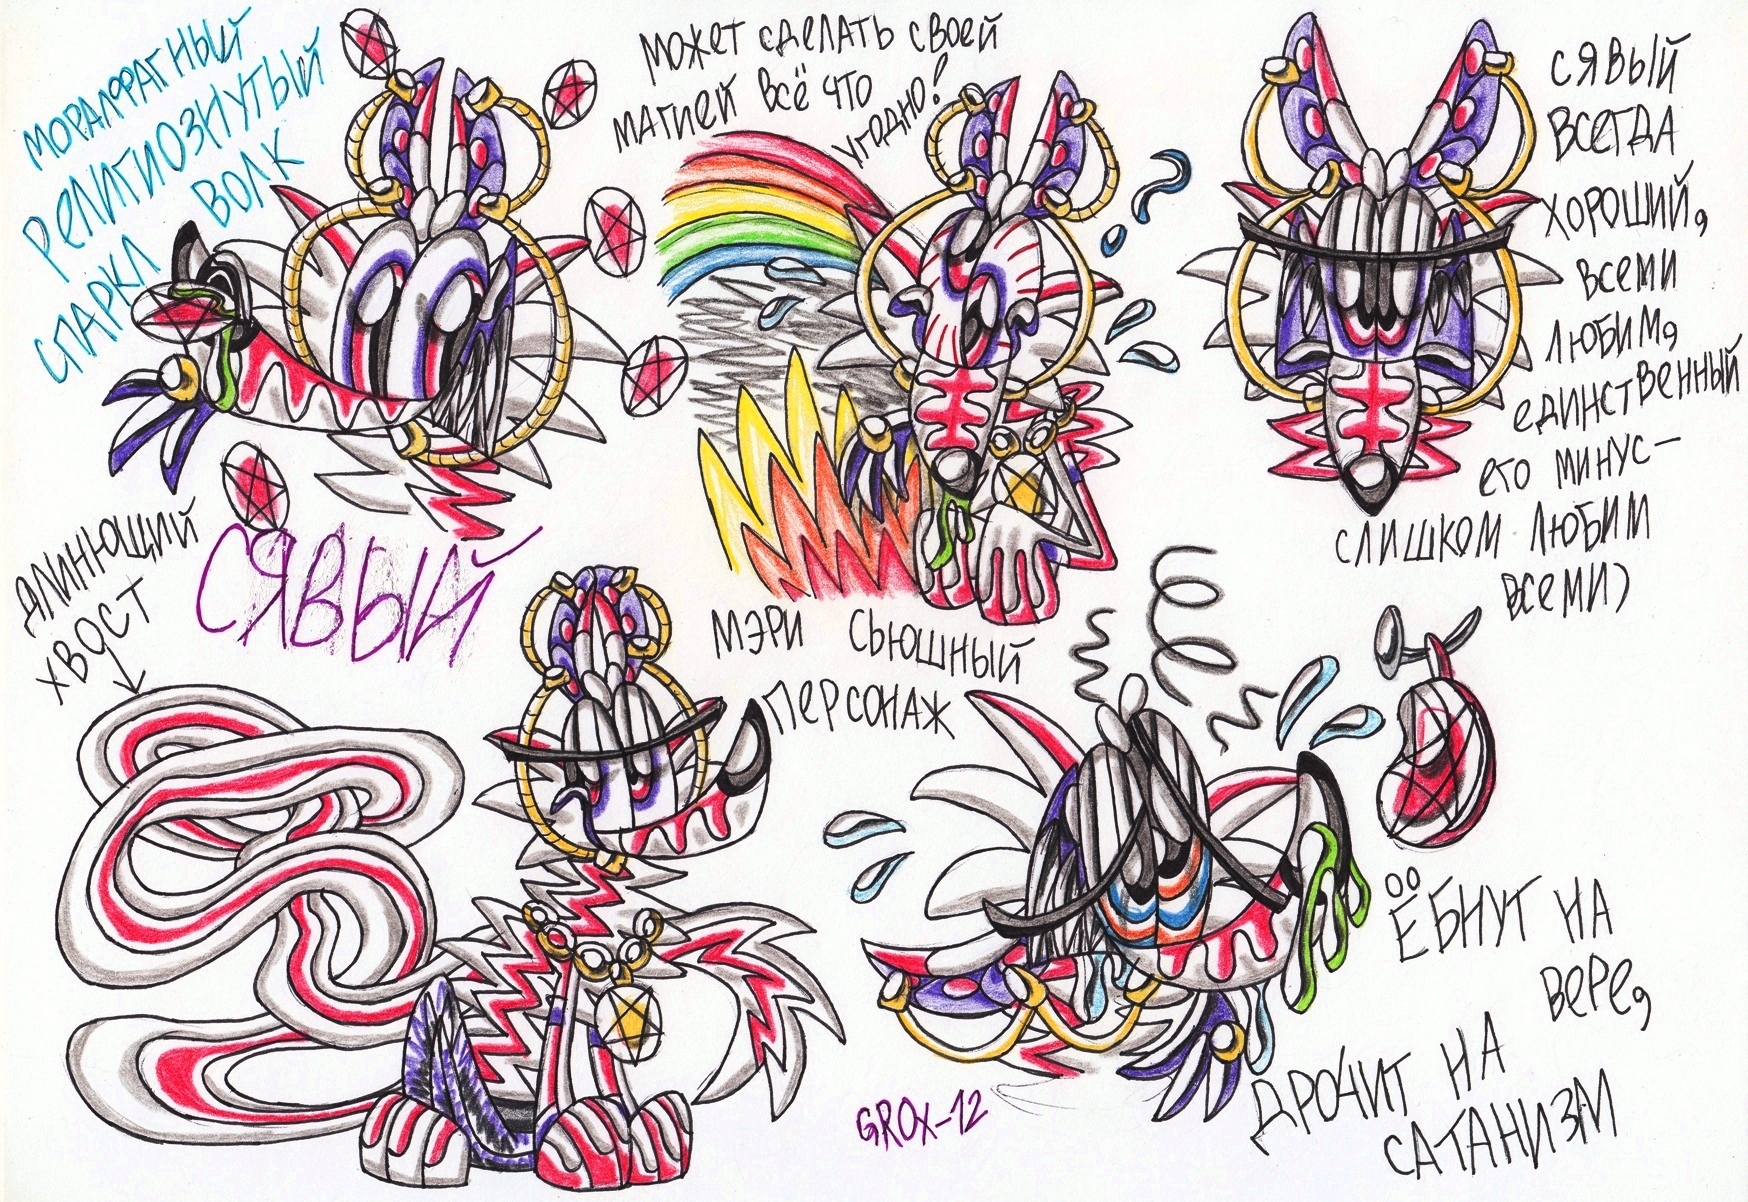 МОРАЛФАГНЫЙ
РЕЛИГИОЗНУТЫЙ
ВОЛК
СПАРКЛ
МОЖЕТ СДЕЛАТЬ СВОЕЙ
МАГИЕЙ ВСЁ ЧТО
УГОДНО!
СЯВЫЙ
ВСЕГДА
ХОРОШИЙ,
ВСЕМИ
ЛЮБИМ,
ЕДИНСТВЕННЫЙ
ЕГО МИНУС –
СЛИШКОМ ЛЮБИМ
ВСЕМИ)
?
ДЛИНЮЩИЙ
ХВОСТ
СЯВЫЙ
МЭРИ СЬЮШНЫЙ
ПЕРСОНАЖ
ЁБНУТ НА
ВЕРЕ,
ДРОЧИТ НА
САТАНИЗМ
GROX-12